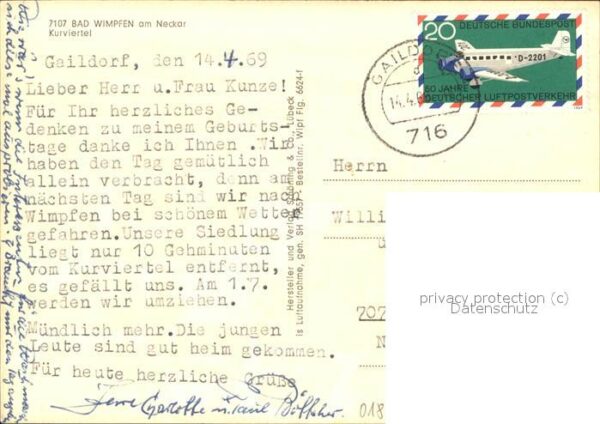 7107 BAD WIMPFEN am Neckar
Kurviertel
Gaildorf, den 14.4.69
Lieber Herr u.Frau Kunze!
Für Ihr herzliches Ge-
denken zu meinem Geburts-
tage danke ich Ihnen .Wir
haben den Tag gemütlich
allein verbracht, denn am
nächsten Tag sind wir nach
Wimpfen bei schönem Wetter
gefahren.Unsere Siedlung
liegt nur 10 Gehminuten
vom Kurviertel entfernt,
es gefällt uns. Am 1.7.
werden wir umziehen.
Mündlich mehr.Die jungen
Leute sind gut heim gekommen.
Für heute herzliche Grüße
Charlotte u. Paul
Hersteller und Verlag Schöning & Co., Lübeck
Luftaufnahme, gen. SH Bestellnr. Wipf Flg. 6624-f
20
DEUTSCHE BUNDESPOST
D-2201
50 JAHRE
DEUTSCHER LUFTPOSTVERKEHR
GAILDORF
14.4.
716
Herrn
Willi
707
N
018
privacy protection (c)
Datenschutz